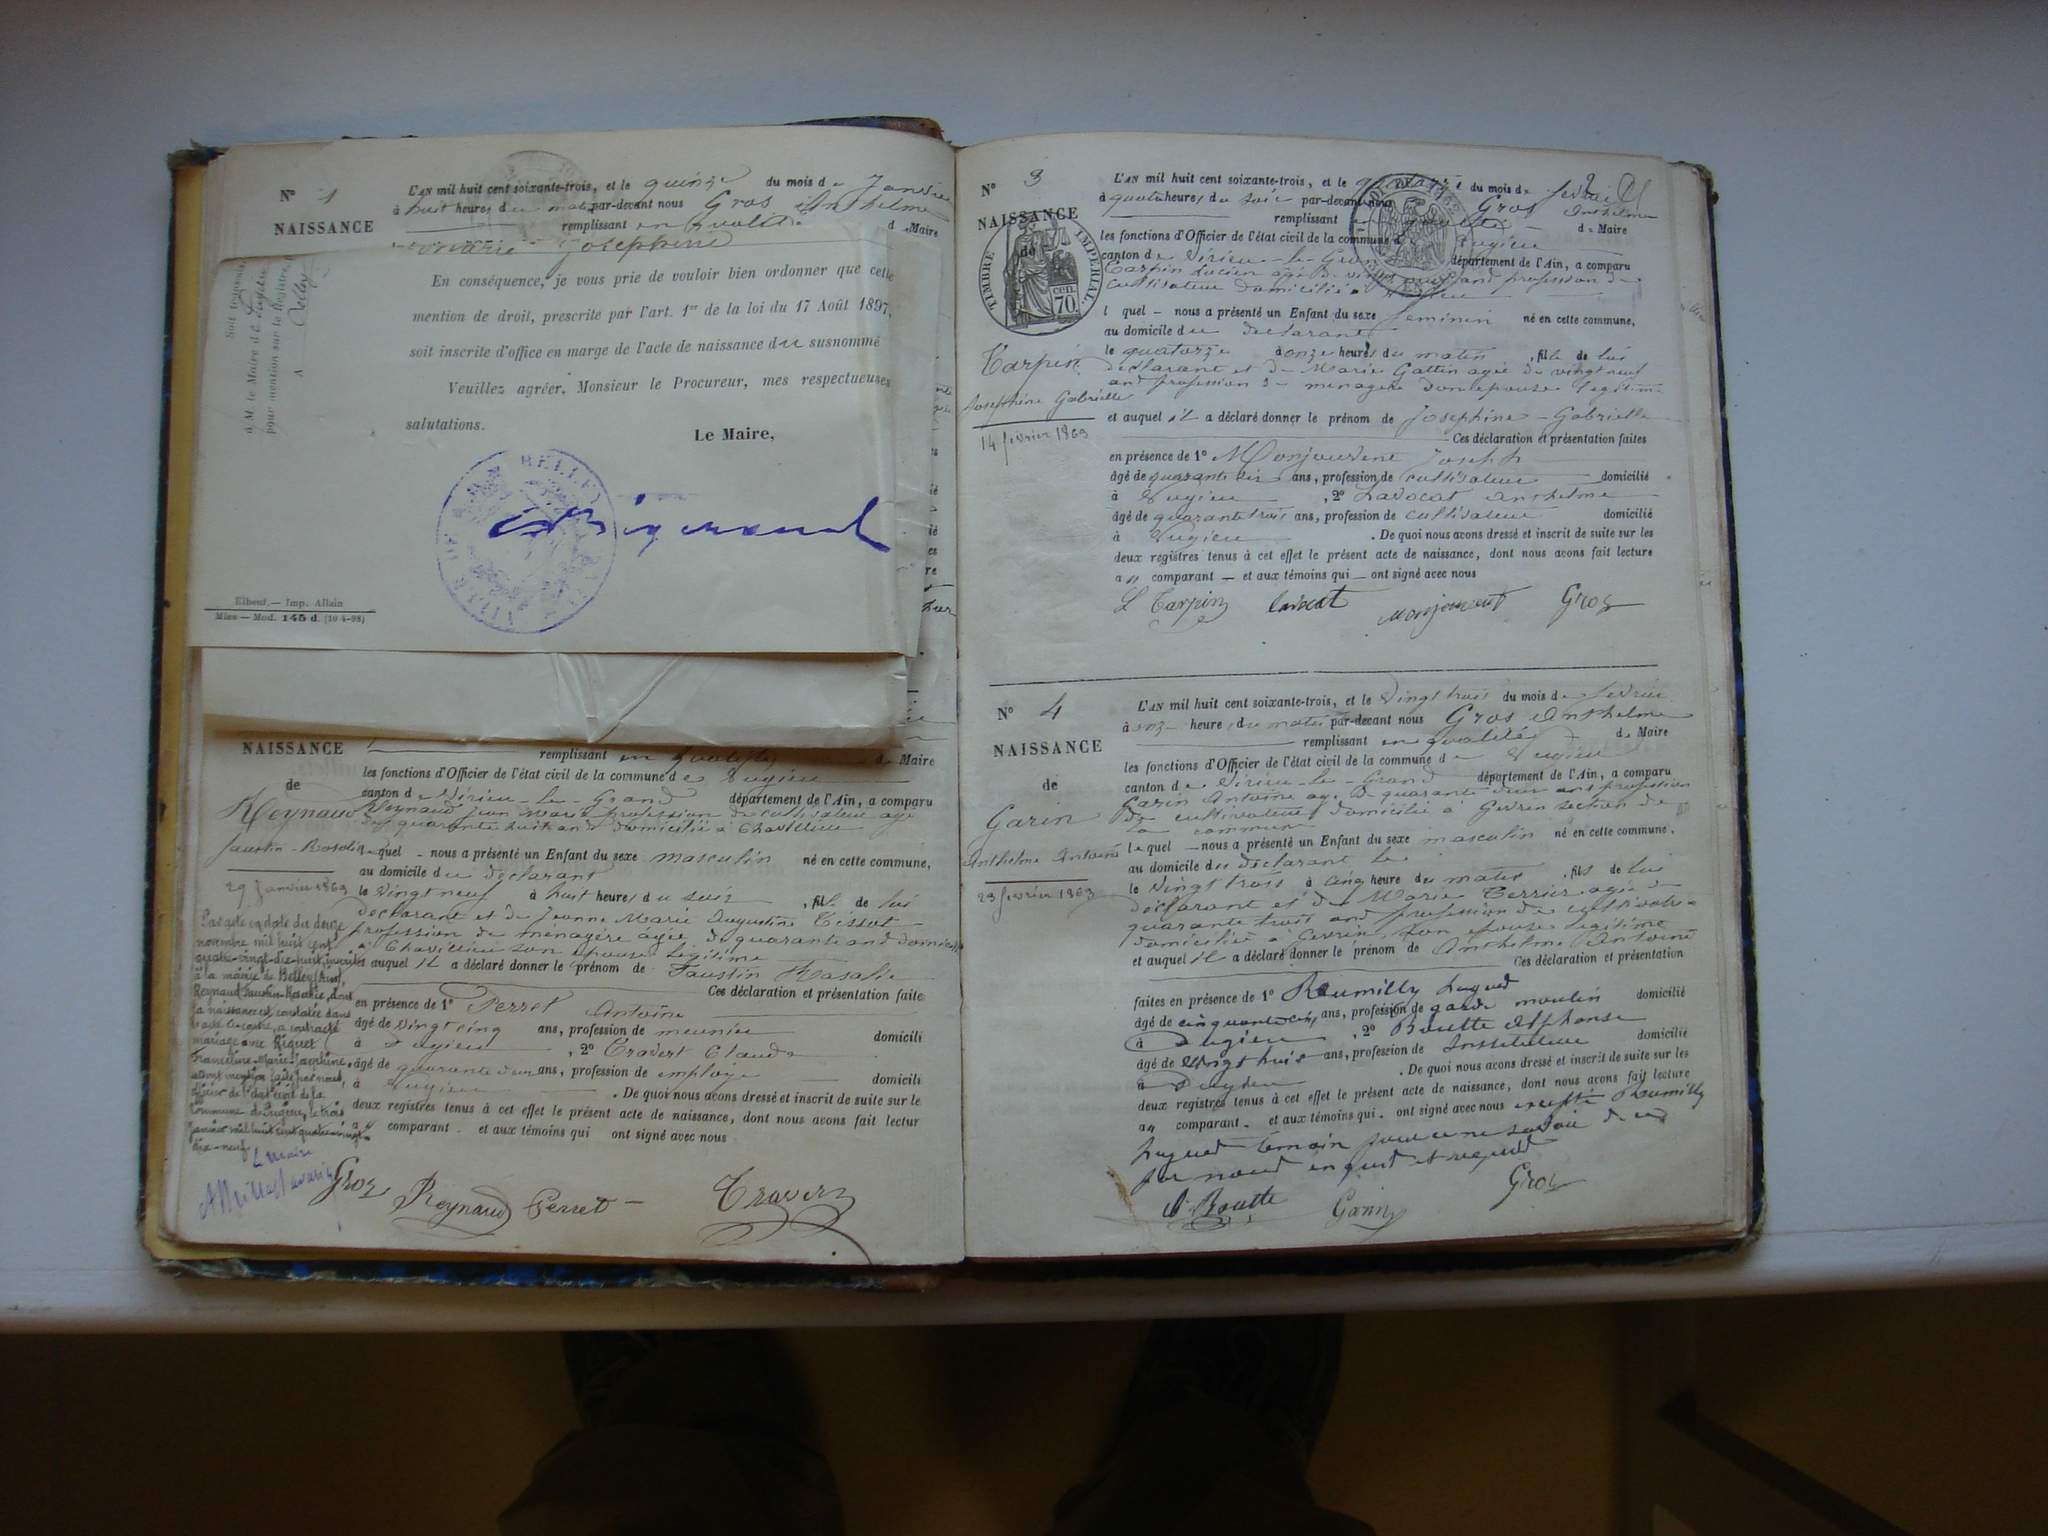 N° 1
NAISSANCE
L'AN mil huit cent soixante-trois, et le quinze du mois de Janvier
à huit heures du matin par-devant nous Gros Anthelme
remplissant en qualité de Maire
Marie Josephine
En conséquence, je vous prie de vouloir bien ordonner que cette
mention de droit, prescrite par l'art. 1er de la loi du 17 Août 1897,
soit inscrite d'office en marge de l'acte de naissance du susnommé
Veuillez agréer, Monsieur le Procureur, mes respectueuses
salutations.
Le Maire,
VILLE DE BELLEY
Elbeuf. — Imp. Allain
Mire — Mod. 145 d. (10-4-98)
à M. le Maire de
pour mention sur le Registre
A Belley
NAISSANCE
de
Reynaud
Faustin-Rosalie
29 Janvier 1863
remplissant en qualité de Maire
les fonctions d'Officier de l'état civil de la commune de Pugieu
canton de Virieu-le-Grand département de l'Ain, a comparu
Reynaud Jean Marie profession de cultivateur agé
de quarante huit ans domicilié à Chavillieu
quel - nous a présenté un Enfant du sexe masculin né en cette commune,
au domicile du déclarant
le vingt neuf à huit heures du soir, fils de lui
déclarant et de Jeanne Marie Augustine Tissot
profession de ménagère agée de quarante ans domiciliée
à Chavillieu son épouse légitime
auquel il a déclaré donner le prénom de Faustin Rosalie
Ces déclaration et présentation faite
en présence de 1° Perret Antoine
âgé de vingt cinq ans, profession de meunier domicili
à Pugieu, 2° Travert Claude
âgé de quarante deux ans, profession de employé domicili
à Pugieu. De quoi nous avons dressé et inscrit de suite sur le
deux registres tenus à cet effet le présent acte de naissance, dont nous avons fait lectur
a u comparant - et aux témoins qui ont signé avec nous
Gros Reynaud Perret Travert
Par acte en date du douze
novembre mil huit cent
quatre-vingt-dix-huit, inscrit
à la mairie de Belley (Ain),
Reynaud Faustin-Rosalie, dont
la naissance est constatée dans
l'acte ci-contre, a contracté
mariage avec Riguet
Franceline-Marie-Josephine,
dont mention faite par nous,
officier de l'état civil de la
Commune de Pugieu, le trois
janvier mil huit cent quatre-vingt-
dix-neuf.
Le Maire
N° 3
NAISSANCE
de
TIMBRE IMPERIAL
CEN. 70.
Carpin
Josephine Gabrielle
14 février 1863
L'AN mil huit cent soixante-trois, et le quatorze du mois de février
à quatre heures du soir par-devant nous Gros Anthelme
remplissant en qualité de Maire
les fonctions d'Officier de l'état civil de la commune de Pugieu
canton de Virieu-le-Grand département de l'Ain, a comparu
Carpin Lucien agé de vingt ans profession de
cultivateur domicilié à Pugieu
l quel - nous a présenté un Enfant du sexe féminin né en cette commune,
au domicile du déclarant
le quatorze à onze heures du matin, fille de lui
déclarant et de Marie Gattin agée de vingt neuf
ans profession de ménagère son épouse légitime
et auquel il a déclaré donner le prénom de Josephine-Gabrielle
Ces déclaration et présentation faites
en présence de 1° Monjouvent Joseph
âgé de quarante six ans, profession de cultivateur domicilié
à Pugieu, 2° Lavocat Anthelme
âgé de quarante trois ans, profession de cultivateur domicilié
à Pugieu. De quoi nous avons dressé et inscrit de suite sur les
deux registres tenus à cet effet le présent acte de naissance, dont nous avons fait lecture
a u comparant — et aux témoins qui — ont signé avec nous
L Carpin Lavocat Monjouvent Gros
N° 4
NAISSANCE
de
Garin
Anthelme Antoine
23 février 1863
L'AN mil huit cent soixante-trois, et le vingt trois du mois de février
à onze heure du matin par-devant nous Gros Anthelme
remplissant en qualité de Maire
les fonctions d'Officier de l'état civil de la commune de Pugieu
canton de Virieu-le-Grand département de l'Ain, a comparu
Garin Antoine agé de quarante deux ans profession
de cultivateur domicilié à Gevrin section de
la commune
lequel — nous a présenté un Enfant du sexe masculin né en cette commune.
au domicile du déclarant le
le vingt trois à cinq heure du matin, fils de lui
déclarant et de Marie Terrier agée de
quarante trois ans profession de cultivatrice
domiciliée à Gevrin son épouse légitime
et auquel il a déclaré donner le prénom de Anthelme Antoine
Ces déclaration et présentation
faites en présence de 1° Roumilly Hugues
âgé de cinquante cinq ans, profession de garde moulin domicilié
à Pugieu, 2° Boutte Alphonse
âgé de vingt huit ans, profession de Instituteur domicilié
à Pugieu. De quoi nous avons dressé et inscrit de suite sur les
deux registres tenus à cet effet le présent acte de naissance, dont nous avons fait lecture
au comparant. et aux témoins qui. ont signé avec nous excepté Roumilly
Hugues témoin pour ne savoir de ce
par nous enquis et requis
A. Boutte Garin Gros